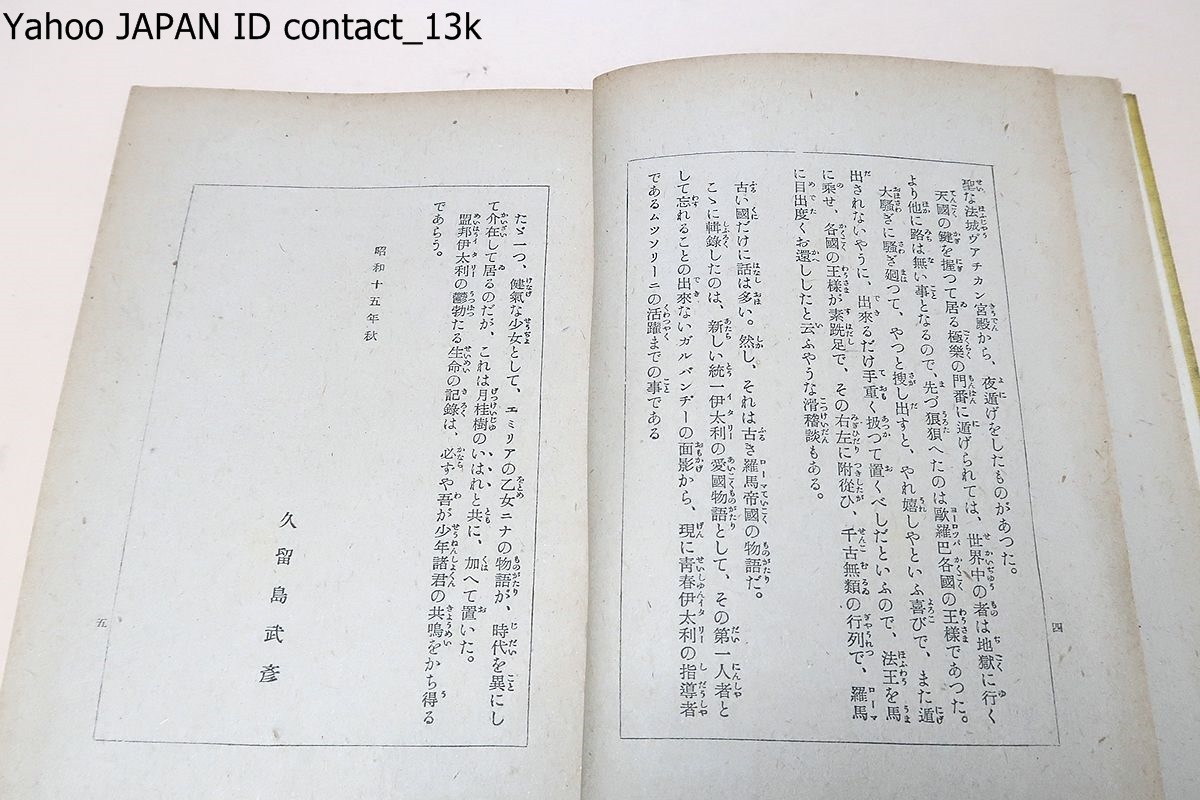 Yahoo JAPAN ID contact_13k
聖な法城ヴアチカン宮殿から、夜遁げをしたものがあつた。
天國の鍵を握つて居る極樂の門番に遁げられては、世界中の者は地獄に行く
より他に路は無い事となるので、先づ狼狽へたのは歐羅巴各國の王樣であつた。
大騷ぎに騷ぎ廻つて、やつと捜し出すと、やれ嬉しやといふ喜びで、また遁
出されないやうに、出來るだけ手重く扱つて置くべしだといふので、法王を馬
に乘せ、各國の王樣が素跣足で、その右左に附從ひ、千古無類の行列で、羅馬
に目出度くお還ししたと云ふやうな滑稽談もある。
古い國だけに話は多い。然し、それは古き羅馬帝國の物語だ。
こゝに輯錄したのは、新しい統一伊太利の愛國物語として、その第一人者と
して忘れることの出來ないガルバンヂーの面影から、現に靑春伊太利の指導者
であるムツソリーニの活躍までの事である
四
たゞ一つ、健氣な少女として、エミリアの乙女ニナの物語が、時代を異にし
て介在して居るのだが、これは月桂樹のいはれと共に、加へて置いた。
盟邦伊太利の鬱勃たる生命の記錄は、必ずや吾が少年諸君の共鳴をかち得る
であらう。
昭和十五年秋
久留島武彥
五